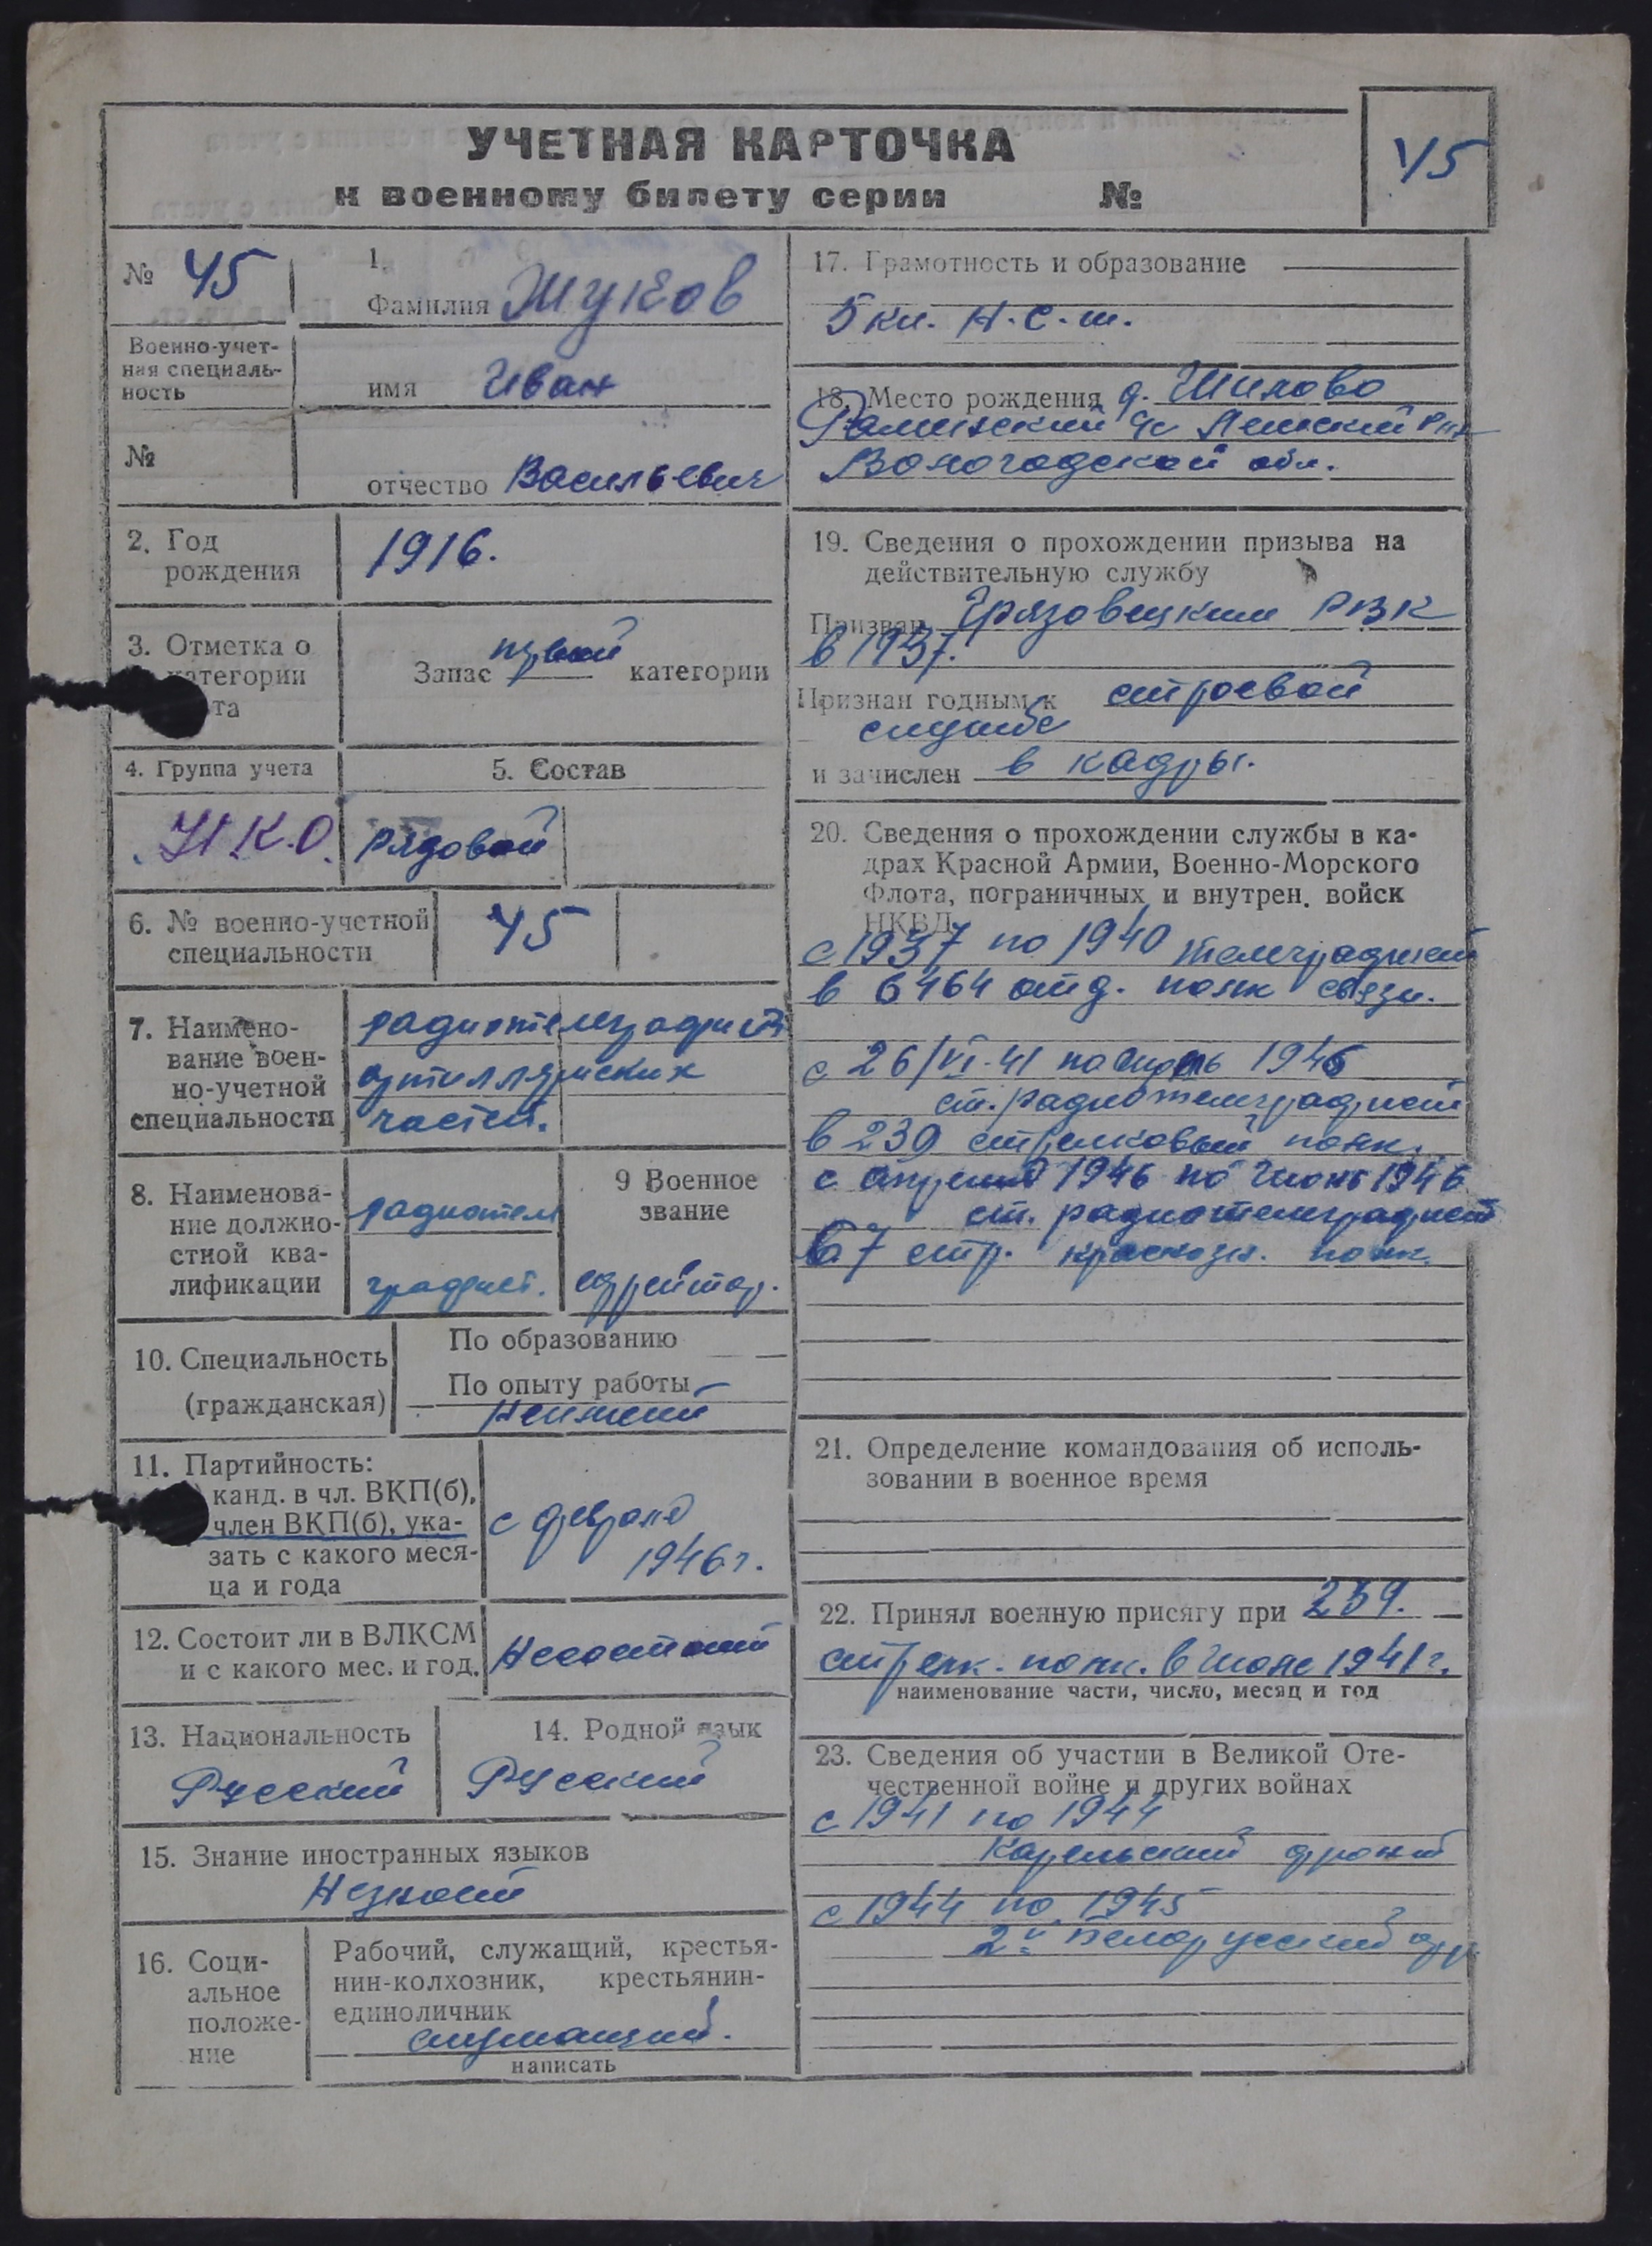 УЧЕТНАЯ КАРТОЧКА
к военному билету серии №
45
№ 45
1.
Фамилия Жуков
Военно-учет-
ная специаль-
ность
имя Иван
№
отчество Васильевич
2. Год
рождения
1916.
3. Отметка о
категории
та
Запас первой категории
4. Группа учета
5. Состав
Н.К.О.
рядовой
6. № военно-учетной
специальности
45
7. Наимено-
вание воен-
но-учетной
специальности
радиотелеграфист
артиллерийских
частей.
8. Наименова-
ние должно-
стной ква-
лификации
радиотеле
графист.
9 Военное
звание
ефрейтор.
10. Специальность
(гражданская)
По образованию
По опыту работы
Неимеет
11. Партийность:
) канд. в чл. ВКП(б),
член ВКП(б), ука-
зать с какого меся-
ца и года
с февраля
1946 г.
12. Состоит ли в ВЛКСМ
и с какого мес. и год.
Несостоит
13. Национальность
Русский
14. Родной язык
Русский
15. Знание иностранных языков
Незнает
16. Соци-
альное
положе-
ние
Рабочий, служащий, крестья-
нин-колхозник, крестьянин-
единоличник
служащий.
написать
17. Грамотность и образование
5 кл. Н.С.ш.
18. Место рождения д. Шилово
с/с
Вологодской обл.
19. Сведения о прохождении призыва на
действительную службу
Призван Грязовецким РВК
в 1937.
Признан годным к строевой
службе
и зачислен в кадры.
20. Сведения о прохождении службы в ка-
драх Красной Армии, Военно-Морского
Флота, пограничных и внутрен. войск
НКВД
с 1937 по 1940 телеграфист
в 6464 отд. полк связи.
с 26/VI-41 по 1946
ст. радиотелеграфист
в 239 стрелковый полк.
с апреля 1946 по Июнь 1946
ст. радиотелеграфист
в 7 стр. краснозн. полк.
21. Определение командования об исполь-
зовании в военное время
22. Принял военную присягу при 239.
стрелк. полк. в Июле 1941 г.
наименование части, число, месяц и год
23. Сведения об участии в Великой Оте-
чественной войне и других войнах
с 1941 по 1944
Карельский фронт
с 1944 по 1945
2й Белорусский фр